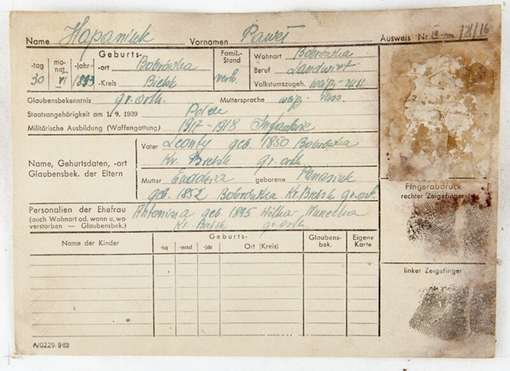 Name Hapaniuk Vornamen Paweł Ausweis Nr.
Geburts- Famil.-Stand Wohnort Bobrówka
-tag mo-nat -jahr -ort Bobrówka Beruf Landwirt
30 VI 1893 -Kreis Bielsk verh. Volkstumszugeh.
Glaubensbekenntnis gr. orth. Muttersprache
Staatsangehörigkeit am 1. 9. 1939 Pole
Militärische Ausbildung (Waffengattung) 1917-1918 Infanterie
Name, Geburtsdaten, -ort Glaubensbek. der Eltern
Vater Leonty geb. 1850 Bobrówka
Kr. Bielsk gr. orth
Mutter geborene Panasiuk
geb. 1852 Bobrówka Kr. Bielsk gr. orth.
Personalien der Ehefrau Antonina geb. 1895
(auch Wohnort od. wenn u. wo verstorben — Glaubensbek.) Kr. Bielsk gr. orth
Name der Kinder Geburts- Glaubens-bek. Eigene Karte
-tag -monat -jahr Ort (Kreis)
Fingerabdruck
rechter Zeigefinger
linker Zeigefinger